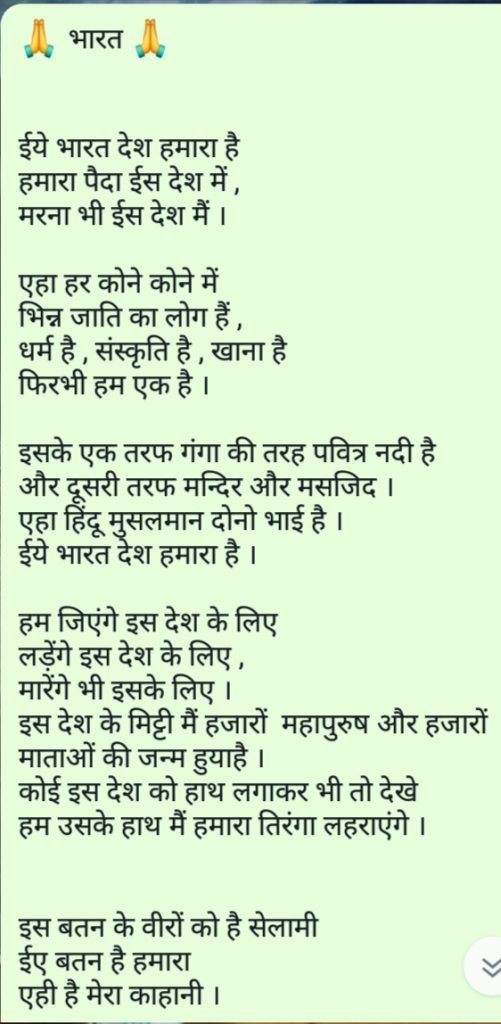 🙏 भारत 🙏
ईये भारत देश हमारा है
हमारा पैदा ईस देश में ,
मरना भी ईस देश मैं ।
एहा हर कोने कोने में
भिन्न जाति का लोग हैं ,
धर्म है , संस्कृति है , खाना है
फिरभी हम एक है ।
इसके एक तरफ गंगा की तरह पवित्र नदी है
और दूसरी तरफ मन्दिर और मसजिद ।
एहा हिंदू मुसलमान दोनो भाई है ।
ईये भारत देश हमारा है ।
हम जिएंगे इस देश के लिए
लड़ेंगे इस देश के लिए ,
मारेंगे भी इसके लिए ।
इस देश के मिट्टी मैं हजारों महापुरुष और हजारों
माताओं की जन्म हुयाहै ।
कोई इस देश को हाथ लगाकर भी तो देखे
हम उसके हाथ मैं हमारा तिरंगा लहराएंगे ।
इस बतन के वीरों को है सेलामी
ईए बतन है हमारा
एही है मेरा काहानी ।